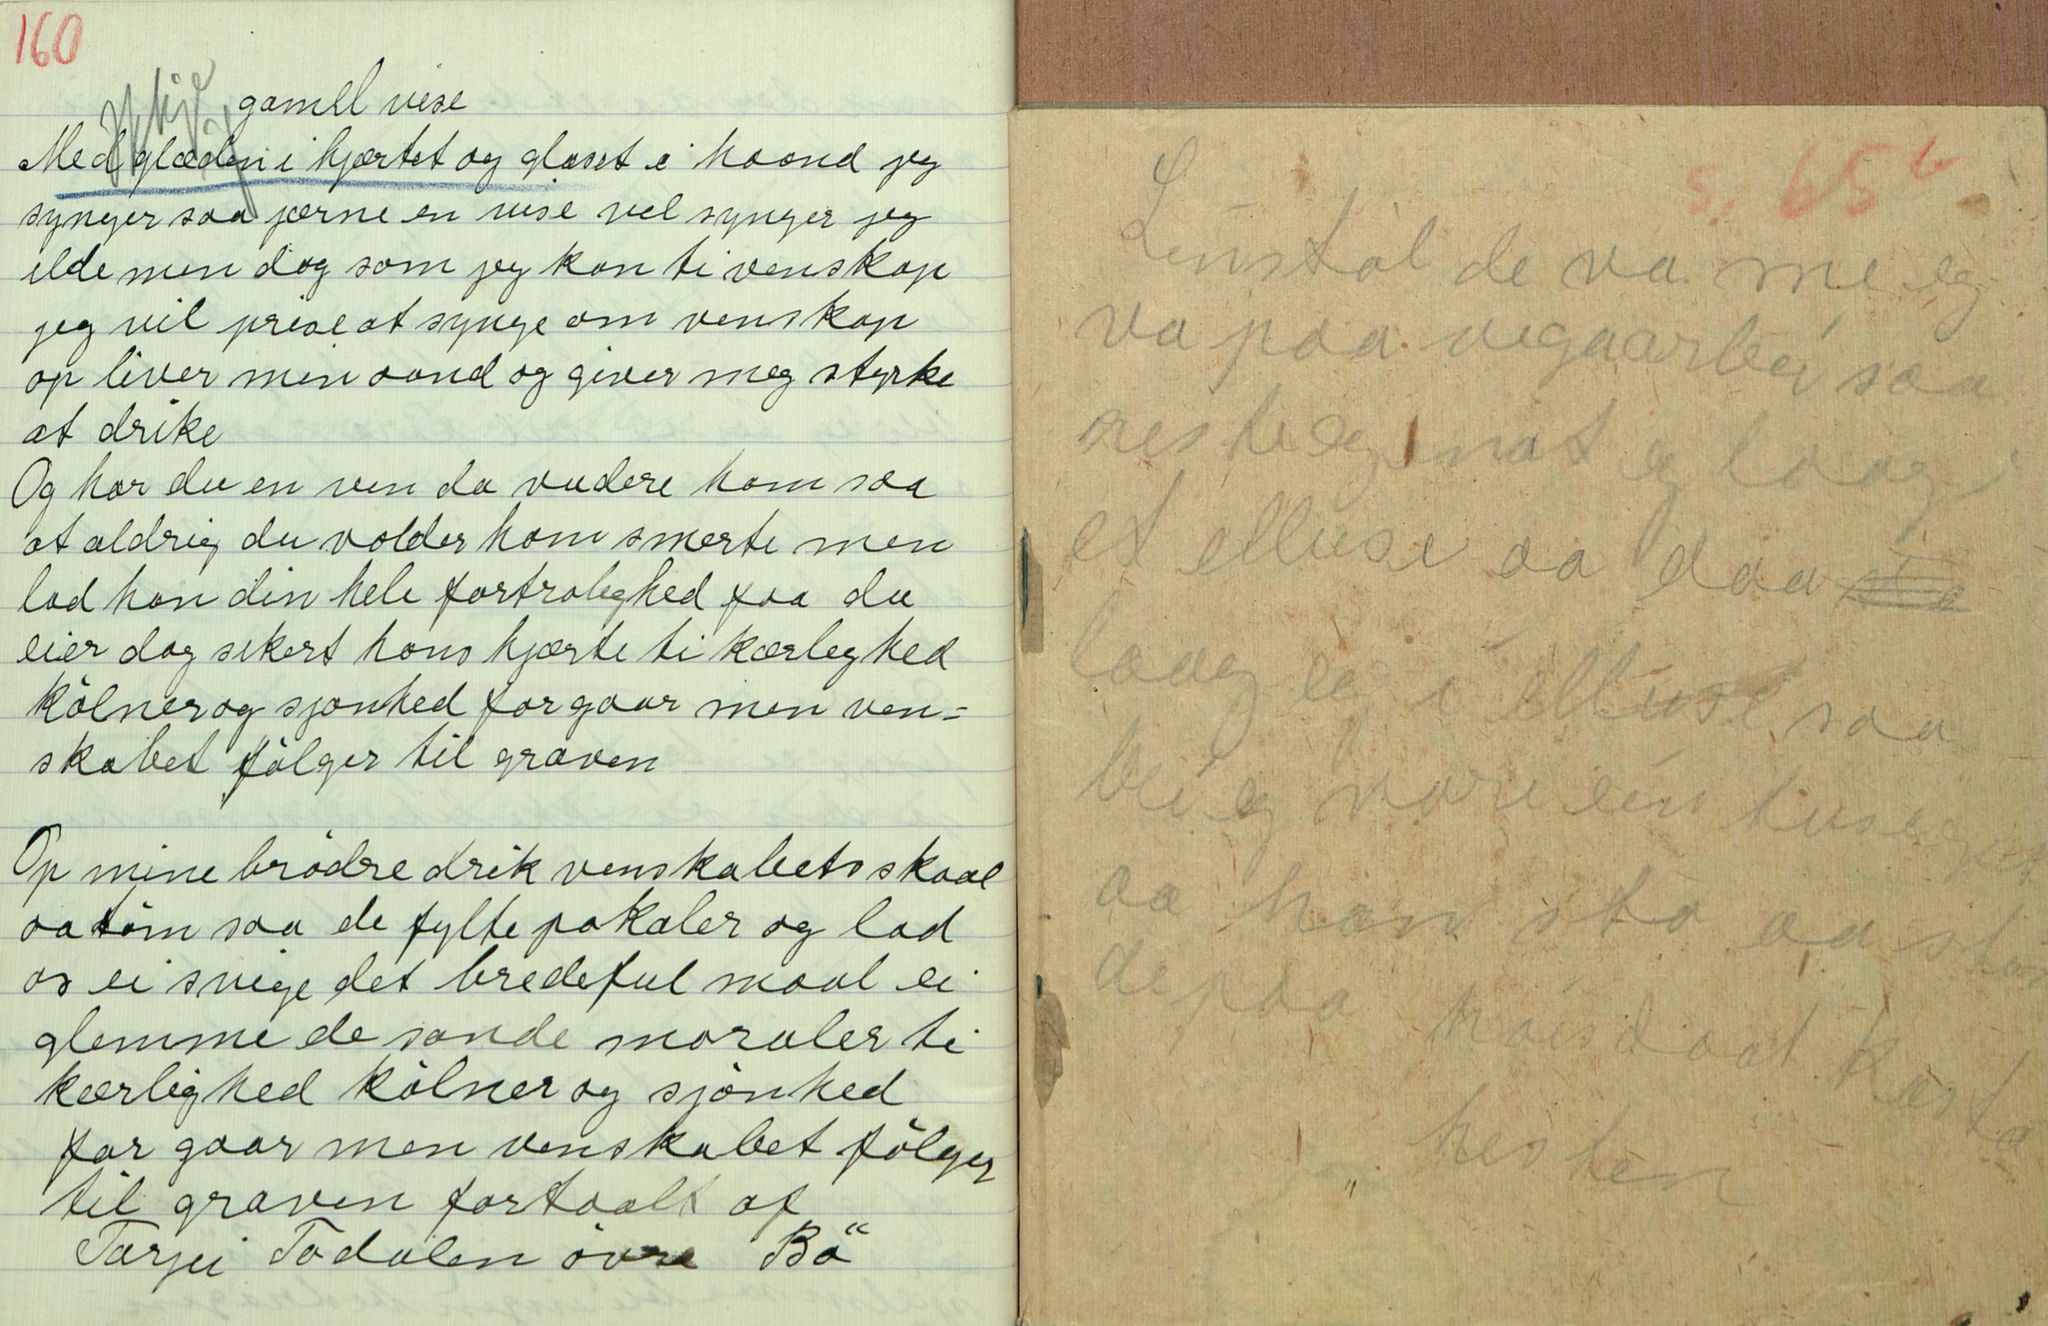 160
Ikkje
gamel vise
Med glæden i hjærtet og glaset i haand jeg
synger saa jærne en vise vel synger jeg
ilde men dog som jeg kan ti venskap
jeg vil prise at synge om venskap
op liver min aand og giver meg styrke
at drike
Og har du en ven da vudere ham saa
at aldrig du volder ham smerte men
lad han din hele fortroleghed faa du
eier dog sikert hans hjærte ti kærleghed
kölner og sjonhed for gaar men ven-
skabet fölger til graven
Op mine brödre drik venskabets skaal
aa töm saa de fylte pokaler og lad
os ei svige det bredeful maal ei
glemme de sande moraler ti
kærlighed kölner og sjönhed
for gaar men venskabet fölger
til graven fortaalt af
Tarjei Todalen övre Bö
s. 65 b
Linstöl de va me eg
va paa vegaarbei saa
reste eg nat eg laag i
et elluse aa daa
laag eg i elluse saa
blei eg var ein
aa han sto aa
de paa kasta
hesten